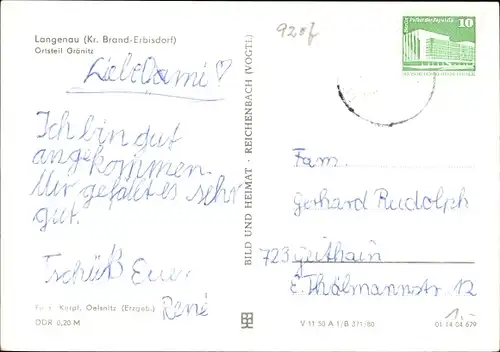 Langenau (Kr. Brand-Erbisdorf)
Ortsteil Gränitz
Liebe Mami ♡
Ich bin gut
angekommen.
Mir gefällt es sehr
gut.
Tschüß Euer
René
Karpf, Oelsnitz (Erzgeb.)
DDR 0,20 M
BILD UND HEIMAT · REICHENBACH (VOGTL)
920f
Palast der Republik
10
Fam.
Gerhard Rudolph
723 Geithain
E. Thälmannstr. 12
V 11 50 A 1/B 371/80
01 14 04 679
1.-